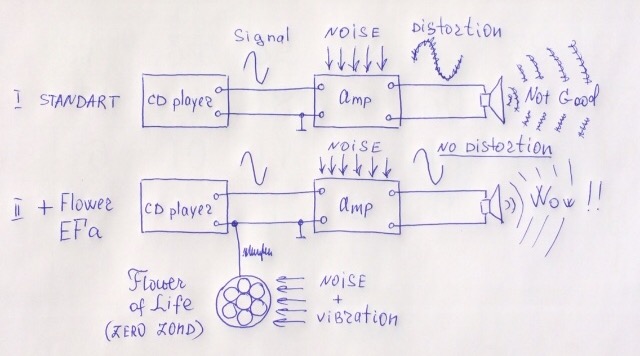 Signal
NOISE
DISTORTION
I STANDART
CD player
amp
Not Good
NOISE
NO DISTORTION
II + Flower
EFa
CD player
amp
Wow !!
Flower
of Life
(ZERO ZOND)
NOISE
+
VIBRATION